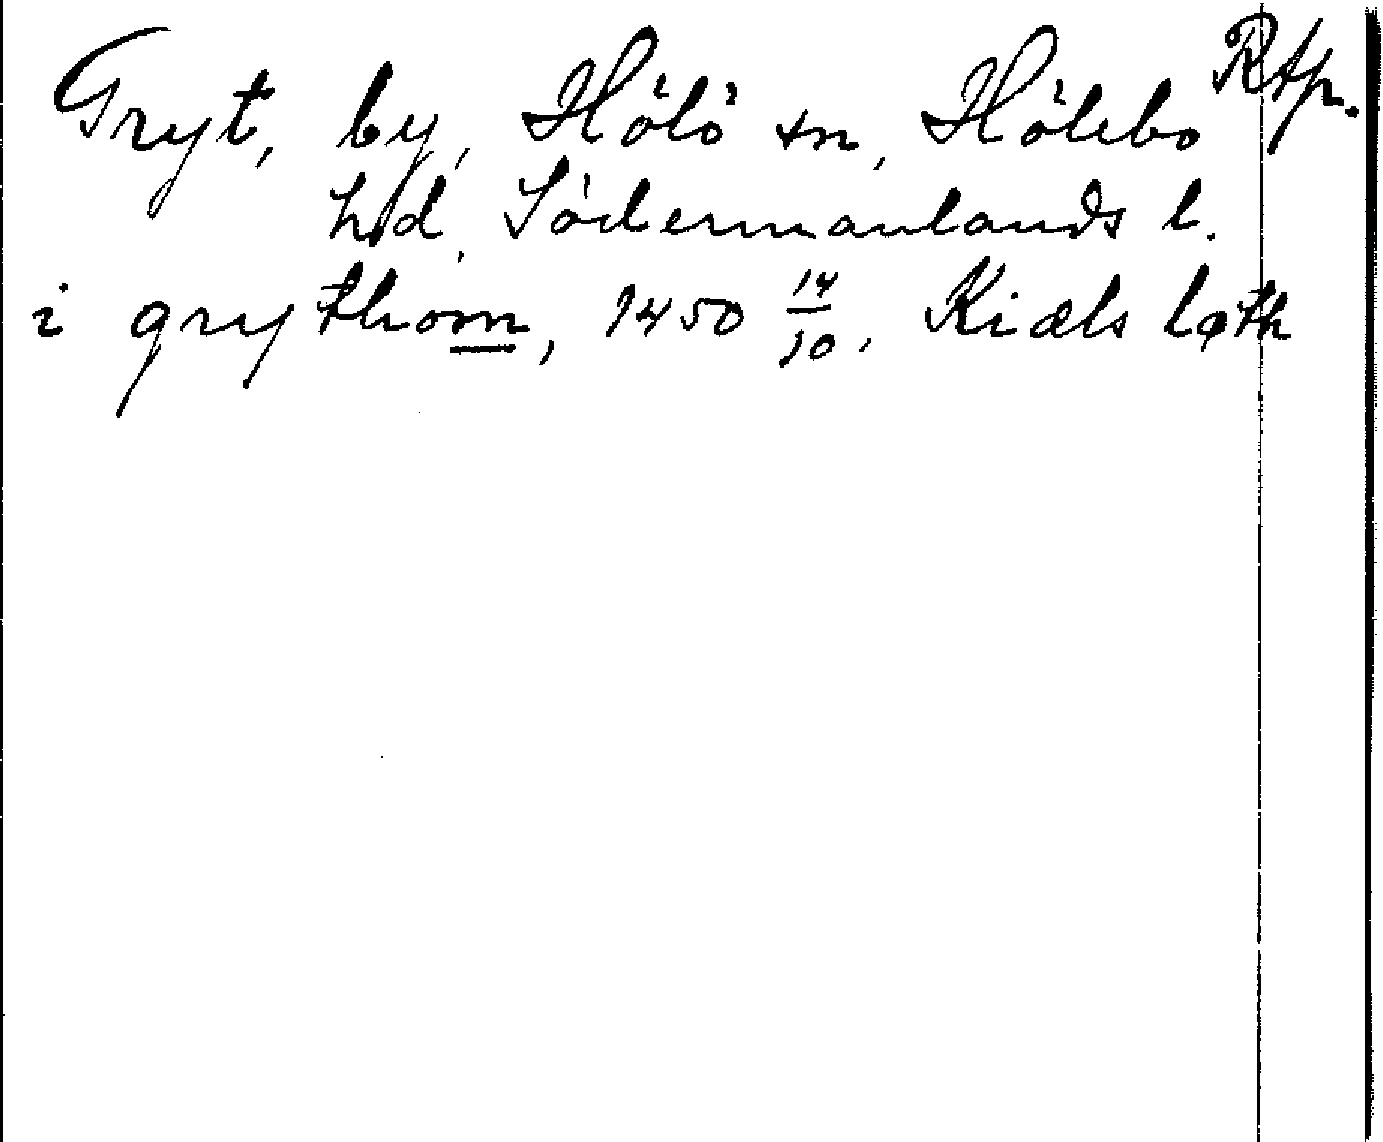 Gryt, by, Hölö sn, Hölebo Rtp.
hd, Södermanlands l.
i grythom, 1450 14/10, Kiæls løth